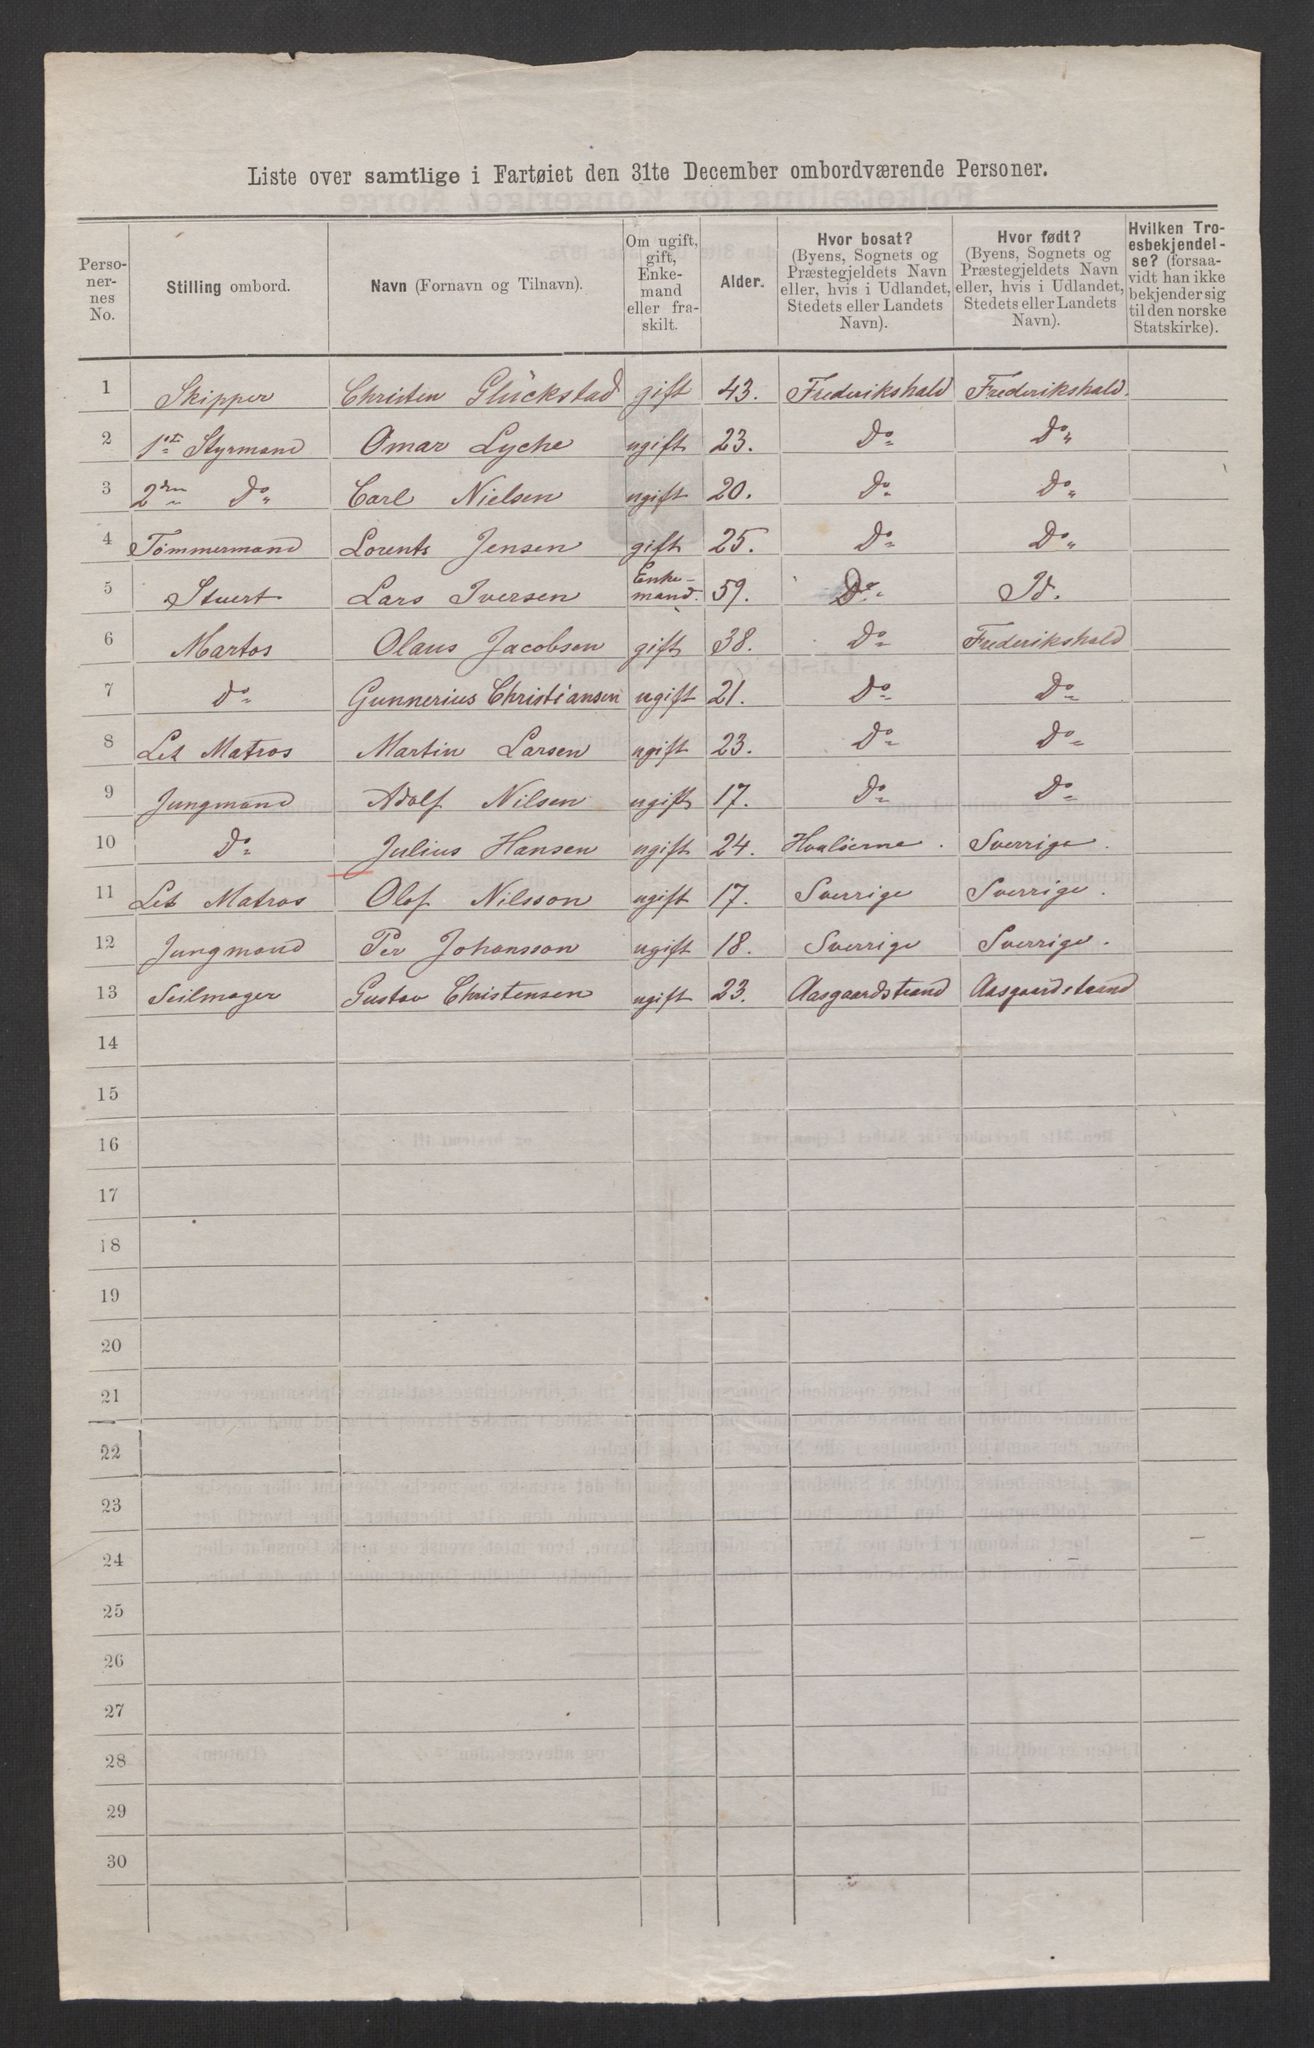 Liste over samtlige i Fartøiet den 31te December ombordværende Personer.
Perso-
ner-
nes
No.
Stilling ombord.
Navn (Fornavn og Tilnavn).
Om ugift,
gift,
Enke-
mand
eller fra-
skilt.
Alder.
Hvor bosat?
(Byens, Sognets og
Præstegjeldets Navn
eller, hvis i Udlandet,
Stedets eller Landets
Navn).
Hvor født?
(Byens, Sognets og
Præstegjeldets Navn
eller, hvis i Udlandet,
Stedets eller Landets
Navn).
Hvilken Tro-
esbekjendel-
se? (forsaa-
vidt han ikke
bekjender sig
til den norske
Statskirke).
1 Skipper Christen Glückstad gift 43. Frederikshald Frederikshald.
2 1ste Styrmand Omar Lyche ugift 23. Do Do
3 2den Do Carl Nielsen ugift 20. Do Do
4 Tømmermand Lorents Jensen gift 25. Do Do
5 Stuert Lars Iversen Enke-mand. 59. Do Id.
6 Martos Olaus Jacobsen gift 38. Do Frederikshald
7 Do Gunnerius Christiansen ugift 21. Do Do
8 Let Matros Martin Larsen ugift 23. Do Do
9 Jungmand Adolf Nilsen ugift 17. Do Do
10 Do Julius Hansen ugift 24. Hvaløerne. Sverrige.
11 Let Matros Olof Nilsson ugift 17. Sverrige Sverrige.
12 Jungmand Per Johansson ugift 18. Sverrige Sverrige.
13 Seilmager Gustav Christensen ugift 23. Aasgaardstrand Aasgaardstrand
14
15
16
17
18
19
20
21
22
23
24
25
26
27
28
29
30